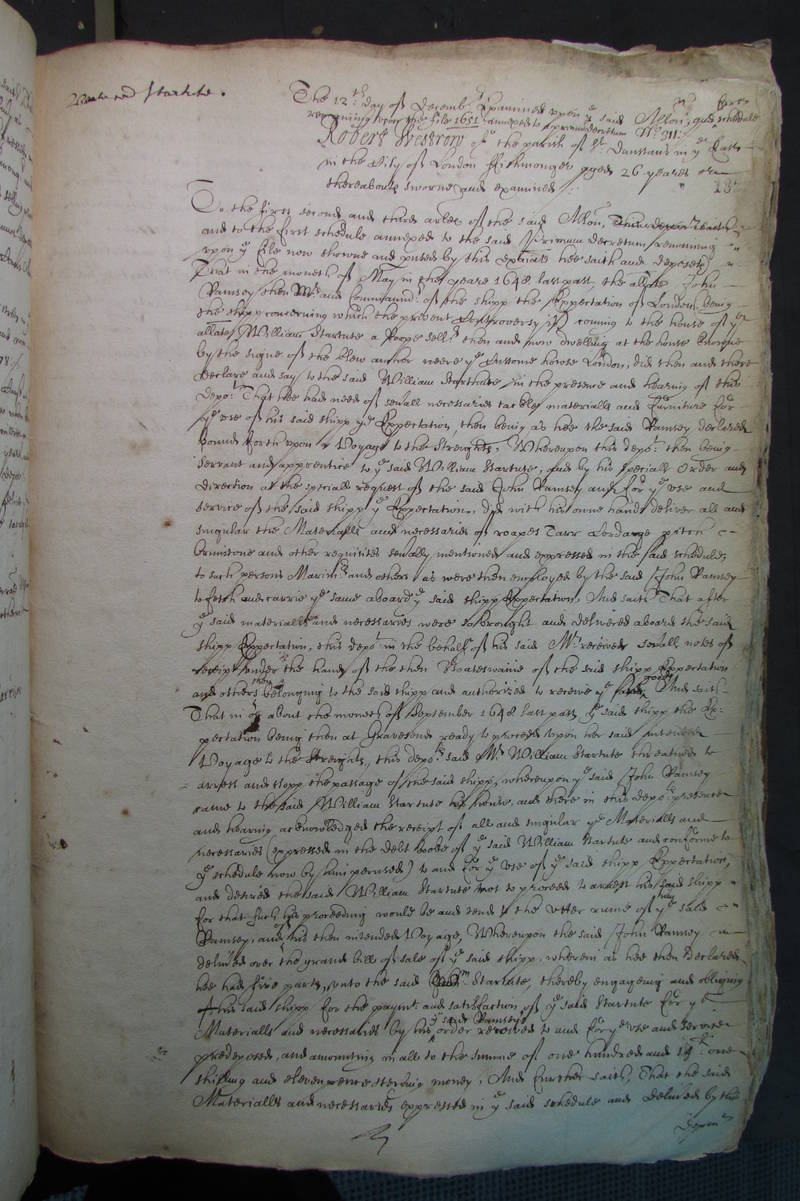 The 12th. day of Decemb: Examined upon ye said Allon, and schedule
remaining upon the file 1651 annexed to
Robert Westrow of the parish of St. Dunstans in ye East
in the City of London ffishmonger aged 26 yeares or
thereabouts sworne and examined
To the first second and third arles of the said Allon,
and to the first schedule annexed to the said Primum decretum remaining
upon ye file now showne and perused by this hee saith and deposeth
That in the moneth of May in the yeare 1648 last past, the allate John
Ramsey then Mr. and Commaund: of the shipp the Expectation of London being
the shipp concerning which the present Controversy is, coming to the house of ye
allate William Startute a Roope seller then and now dwelling at the house knowne
by the signe of the blew anchor neere ye Custome howse London, did then and there
declare and say to the said William Startute in the presence and hearing of this
depot. That hee had need of severall necessaries tackle materialls and furniture for
ye use of his said shipp ye Expectation, then being as hee the said Ramsey declared
bound forth upon a Voyage to the Streights, Whereupon this depot. then being
servant and apprentice to ye said William Startute, and by his speciall Order and
direction at the speciall request of the said John Ramsey and for ye use and
service of the said shipp ye Expectation, did with his owne hands deliver all and
singular the Materialls and necessaries of roapes Tarr Cordage pitch
and other requisites severally mentioned and expressed in the said schedule
to such persons Marinrs. and others as were then employed by the said John Ramsey
to fetch and carrie ye same aboard ye said shipp Expectation, And saith That after
ye said materialls and necessaries were so brought and delivered aboard the said
shipp Expectation, this depot. in the behalfe of his said Mr. received severall notes of
receipt under the hands of the then Boateswaine of the said shipp Expectation
and others then belonging to the said shipp and authorized to receive ye goods And saith
That in or about the moneth of September 1648 last past ye said shipp the Ex-
pectation being then at Gravesend ready to proceed upon her said intended
Voyage to the Streights, this depots. said Mr. William Startute threatned to
arrest and stopp the passage of the said shipp, whereupon ye said John Ramsey
came to the said William Startute his house, and there in this depots. presence
and hearing acknowledged the receipt of all and singular ye Materialls and
necessaries (expressed in the debt booke of ye said William Startute and conforme to
ye schedule now by him perused) to and for ye use of ye said shipp Expectation,
and desired the said William Startute not to proceed to arrest his said shipp
for that such his proceeding would be and tend to the utter ruine of ye said
Ramsey, and his then intended Voyage, Whereupon the said John Ramsey
delivered over the grand bill of sale of ye said shipp wherein as hee then declared
hee had five parts, unto the said Startute, thereby engageing and obliging
his said shipp for the paymt. and satisfaction of ye said Startute for ye
Materialls and necessaries by his ye said Ramseys order received to and for ye use and service
predeposed, and amounting in all to the summe of one hundred and one
shilling and eleven pence sterling money, And further saith, That the said
Materialls and necessaries expressed in ye said schedule and delivered by this
depont.